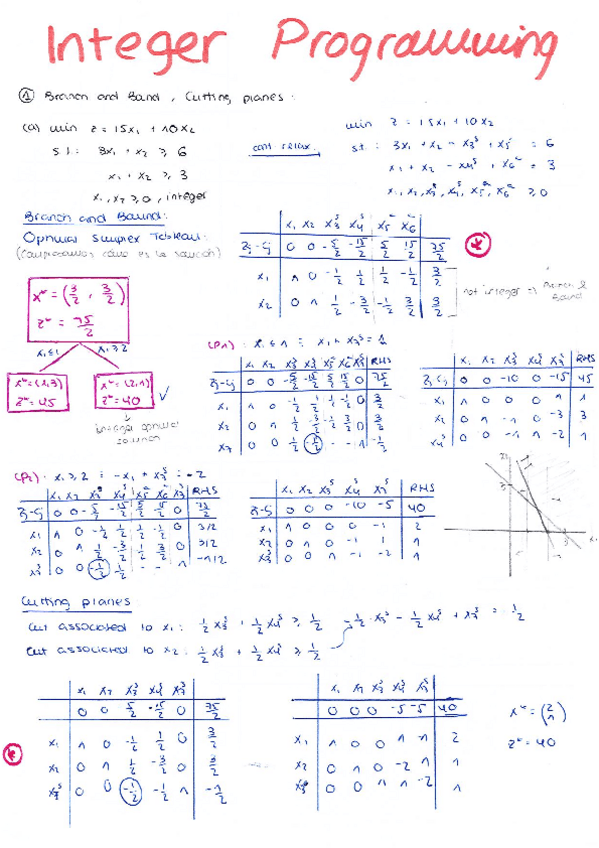 Integer Programming
① Branch and Band, Cutting planes:
(a) min z = 15x₁ + 10x₂
s.t: 3x₁ + x₂ ≥ 6
x₁ + x₂ ≥ 3
x₁, x₂ ≥ 0, integer
cont. relax.
min z = 15x₁ + 10x₂
s.t: 3x₁ + x₂ - x₃ˢ + x₅ᵃ = 6
x₁ + x₂ - x₄ˢ + x₆ᵃ = 3
x₁, x₂, x₃ˢ, x₄ˢ, x₅ᵃ, x₆ᵃ ≥ 0
Branch and Bound:
Optimal Simplex Tableau:
x₁ x₂ x₃ˢ x₄ˢ x₅ᵃ x₆ᵃ
zj-cj 0 0 -5/2 -15/2 5/2 15/2 75/2
x₁ 1 0 -1/2 1/2 1/2 -1/2 3/2
x₂ 0 1 1/2 -3/2 -1/2 3/2 3/2
not integer → Branch & Bound
x* = (3/2, 3/2)
z* = 75/2
x₁≤1 x₁≥2
x* = (1,3)
z* = 45
x* = (2,1)
z* = 40
integer optimal
solution
(P1): x₁ ≤ 1 : x₁ + x₇ˢ = 1
x₁ x₂ x₃ˢ x₄ˢ x₅ᵃ x₆ᵃ x₇ˢ RHS
zj-cj 0 0 -5/2 -15/2 5/2 15/2 0 75/2
x₁ 1 0 -1/2 1/2 1/2 -1/2 0 3/2
x₂ 0 1 1/2 -3/2 -1/2 3/2 0 3/2
x₇ 0 0 1/2 -1/2 - - 1 -1/2
x₁ x₂ x₃ˢ x₄ˢ x₇ˢ RHS
zj-cj 0 0 -10 0 -15 45
x₁ 1 0 0 0 1 1
x₂ 0 1 -1 0 -3 3
x₄ˢ 0 0 -1 1 -2 1
(P2): x₁ ≥ 2 : -x₁ + x₇ˢ = -2
x₁ x₂ x₃ˢ x₄ˢ x₅ᵃ x₆ᵃ x₇ˢ RHS
zj-cj 0 0 -5/2 -15/2 5/2 15/2 0 75/2
x₁ 1 0 -1/2 1/2 1/2 -1/2 0 3/2
x₂ 0 1 1/2 -3/2 -1/2 3/2 0 3/2
x₇ˢ 0 0 -1/2 1/2 - - 1 -1/2
x₁ x₂ x₃ˢ x₄ˢ x₇ˢ RHS
zj-cj 0 0 0 -10 -5 40
x₁ 1 0 0 0 -1 2
x₂ 0 1 0 -1 1 1
x₃ˢ 0 0 1 -1 -2 1
Cutting planes
Cut associated to x₁: 1/2 x₃ˢ + 1/2 x₄ˢ ≥ 1/2
-1/2 x₃ˢ - 1/2 x₄ˢ + x₇ˢ = -1/2
Cut associated to x₂: 1/2 x₃ˢ + 1/2 x₄ˢ ≥ 1/2
x₁ x₂ x₃ˢ x₄ˢ x₇ˢ
0 0 -5/2 -15/2 0 75/2
x₁ 1 0 -1/2 1/2 0 3/2
x₂ 0 1 1/2 -3/2 0 3/2
x₇ˢ 0 0 -1/2 -1/2 1 -1/2
x₁ x₂ x₃ˢ x₄ˢ x₇ˢ
0 0 0 -5 -5 40
x₁ 1 0 0 1 -1 2
x₂ 0 1 0 -2 1 1
x₃ˢ 0 0 1 1 -2 1
x* = (2 1)
z* = 40